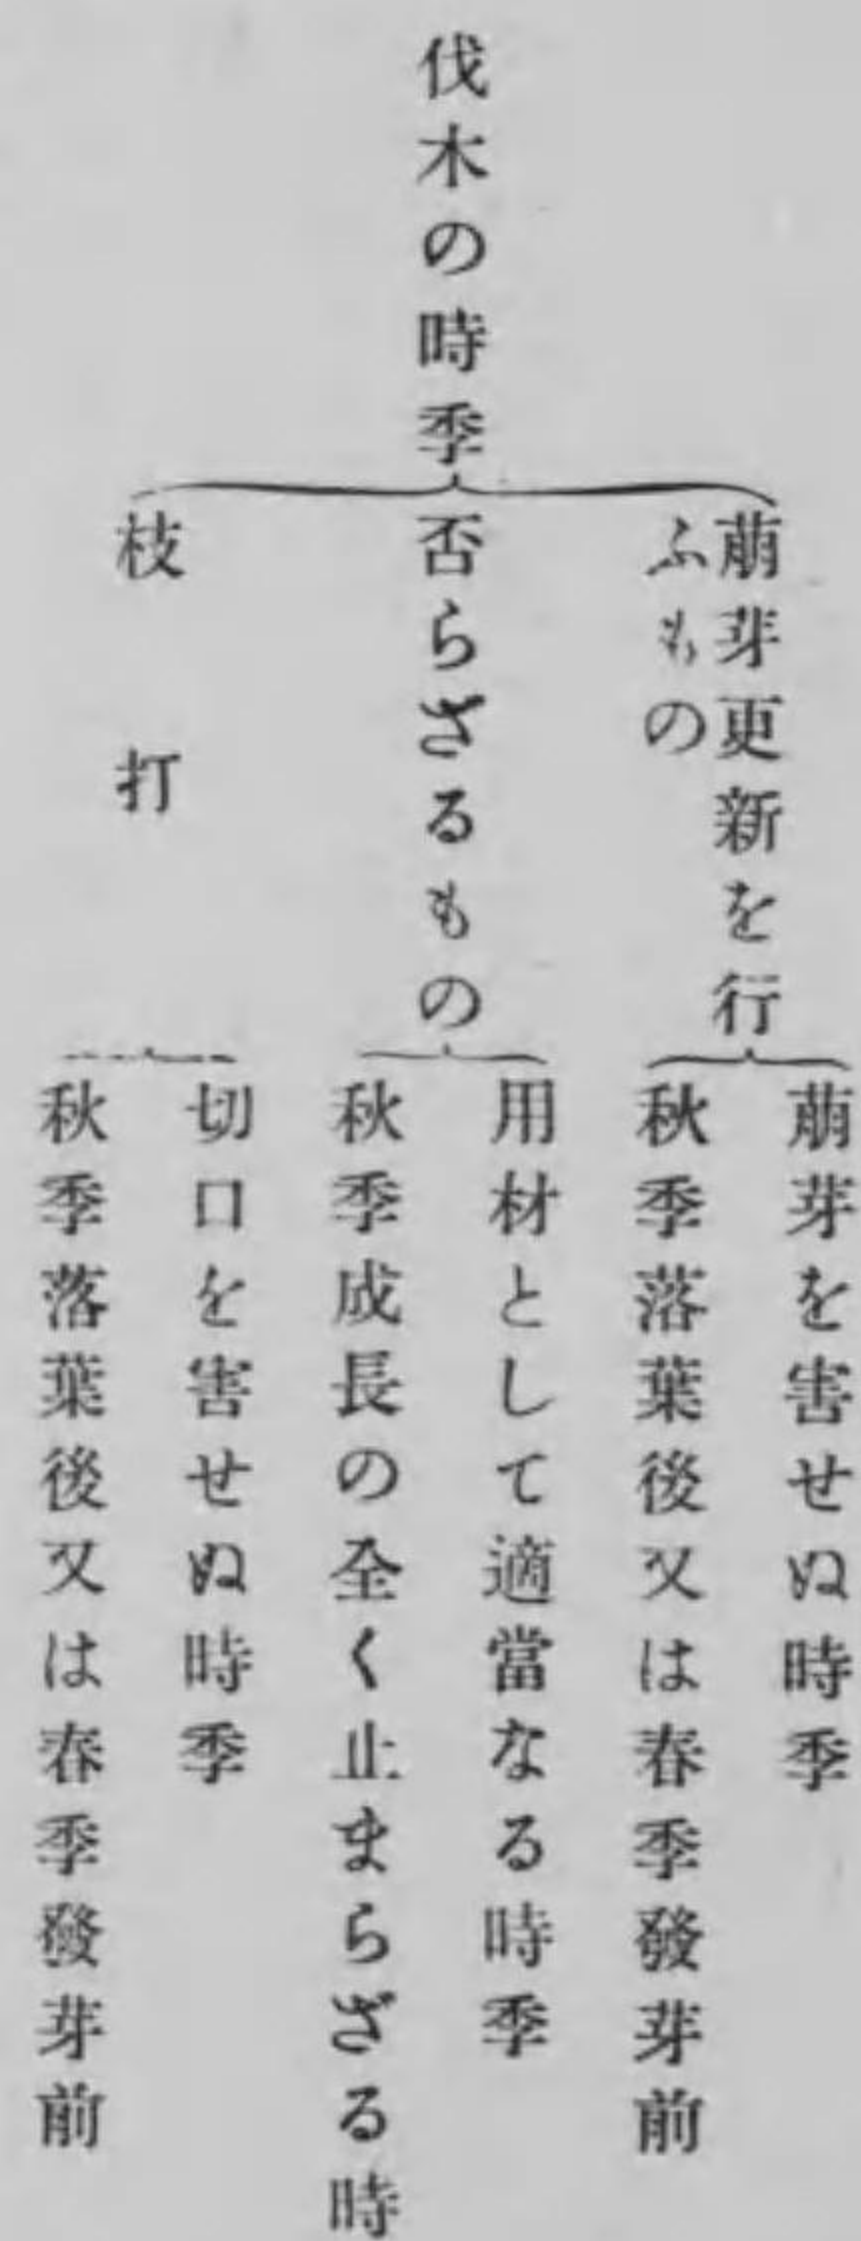 伐木の時季
萠芽更新を行
ふもの
萠芽を害せぬ時季
秋季落葉後又は春季發芽前
否らざるもの
用材として適當なる時季
秋季成長の全く止まらざる時
枝打
切口を害せぬ時季
秋季落葉後又は春季發芽前